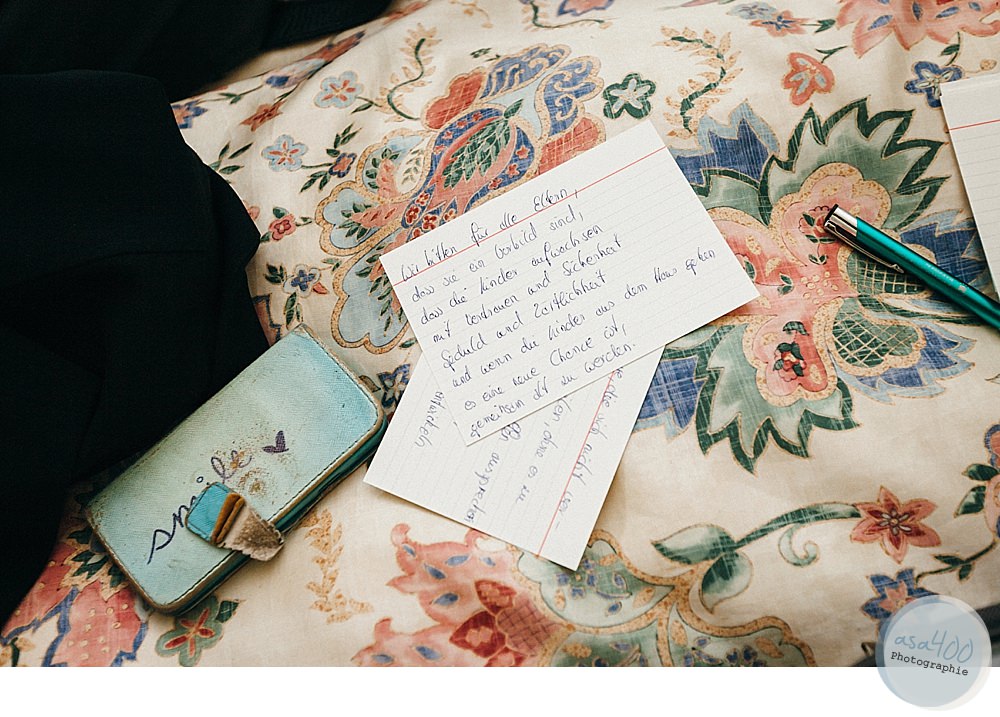 Wir bitten für alle Eltern,
dass sie ein Vorbild sind,
dass die Kinder aufwachsen
mit Vertrauen und Sicherheit
Geduld und Zärtlichkeit
und wenn die Kinder aus dem Haus gehen
es eine neue Chance ist,
gemeinsam alt zu werden.
ohne es zu
aussprechen
entwickeln
smile
asa400
Photographie